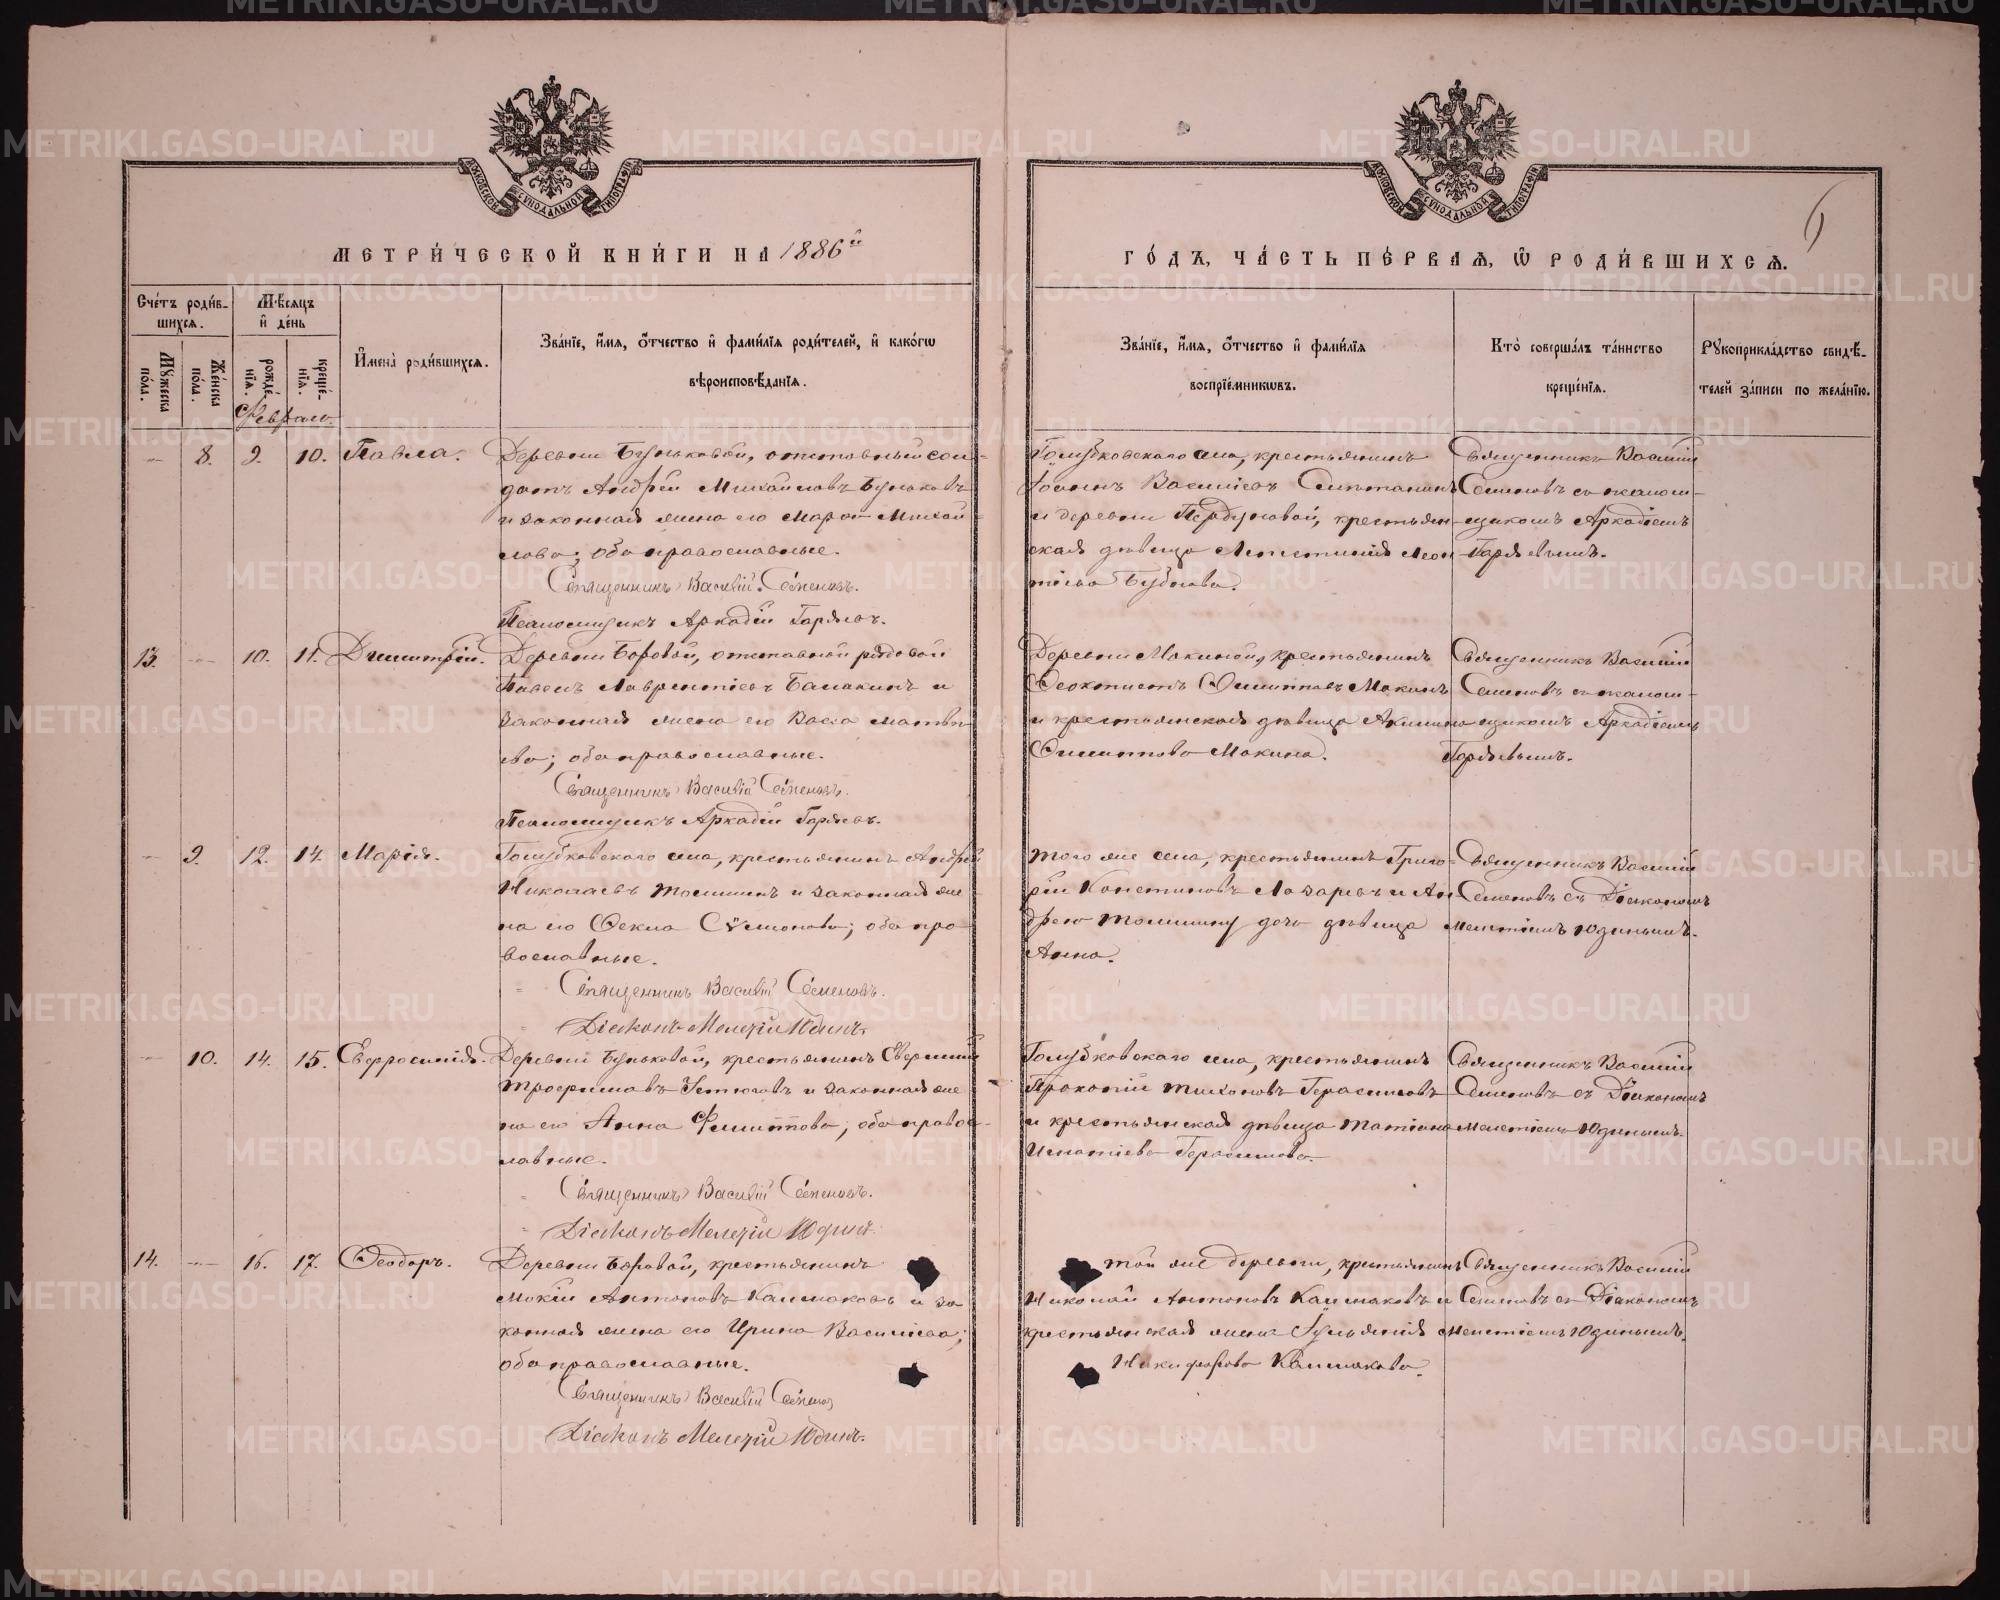 МЕТРИ́ЧЕСКОЙ КНИ́ГИ НА 1886й
ГО́ДЪ, ЧА́СТЬ ПЕ́РВАѦ, Ѡ РОДИ́ВШИХСѦ.
Счётъ роди́в-
шихсѧ.
Мѣ́сѧцъ
и де́нь
Му́жеска
по́ла.
Же́нска
по́ла.
рожде́-
нїѧ.
креще́-
нїѧ.
Февраль
Имена̀ роди́вшихсѧ.
Зва́нїе, и́мѧ, ѻ́тчество и фами́лїѧ роди́телей, и како́гѡ
вѣроисповѣ́данїѧ.
Зва́нїе, и́мѧ, ѻ́тчество и фами́лїѧ
воспрїе́мникѡвъ.
Кто̀ соверша́лъ та́инство
креще́нїѧ.
Рꙋкоприкла́дство свидѣ́-
телей за́писи по жела́нїю.
8. 9. 10. Павла.
Деревни Буньковой, отставный сол-
датъ Андрей Михайловъ Буньковъ
и законная жена его Марѳа Михай-
лова; оба православные.
Священникъ Василій Семеновъ.
Псаломщикъ Аркадій Гаряевъ.
Голубковскаго села, крестьянинъ
Іоаннъ Васильевъ
и деревни крестьян-
ская дѣвица Леон-
тіева
Священникъ Василій
Семеновъ съ псалом-
щикомъ Аркадіемъ
Гаряевымъ.
13. 10. 11. Димитрій.
Деревни Боровой, отставной рядовой
Павелъ Лаврентіевъ Балакинъ и
законная жена его Васса Матвѣ-
ева; оба православные.
Священникъ Василій Семеновъ.
Псаломщикъ Аркадій Гаряевъ.
Деревни Мокиной, крестьянинъ
Ѳеоктистъ Филипповъ Мокинъ
и крестьянская дѣвица Акилина
Филиппова Мокина.
Священникъ Василій
Семеновъ съ псалом-
щикомъ Аркадіемъ
Гаряевымъ.
9. 12. 14. Марія.
Голубковскаго села, крестьянинъ Андрей
Николаевъ Томшинъ и законная же-
на его Ѳекла Сѵмеонова; оба пра-
вославные.
Священникъ Василій Семеновъ.
Діаконъ Мелетій Юдинъ.
того же села, крестьянинъ Григо-
рій Константиновъ Лазаревъ и Ан-
дрею Томшину дочь дѣвица
Анна.
Священникъ Василій
Семеновъ съ Діакономъ
Мелетіемъ Юдинымъ.
10. 14. 15. Евфросинія.
Деревни Буньковой, крестьянинъ Евгеній
Трофимовъ Устюговъ и законная же-
на его Анна Филиппова; оба правос-
лавные.
Священникъ Василій Семеновъ.
Діаконъ Мелетій Юдинъ.
Голубковскаго села, крестьянинъ
Прокопій Тихоновъ Герасимовъ
и крестьянская дѣвица Татіана
Игнатіева Герасимова.
Священникъ Василій
Семеновъ съ Діакономъ
Мелетіемъ Юдинымъ.
14. 16. 17. Ѳеодоръ.
Деревни Боровой, крестьянинъ
Мокій Антоновъ Калмаковъ и за-
конная жена его Ирина Васильева;
оба православные.
Священникъ Василій Семеновъ
Діаконъ Мелетій Юдинъ.
той же деревни, крестьянинъ
Николай Антоновъ Калмаковъ и
крестьянская жена Іуліанія
Никифорова Калмакова.
Священникъ Василій
Семеновъ съ Діакономъ
Мелетіемъ Юдинымъ.